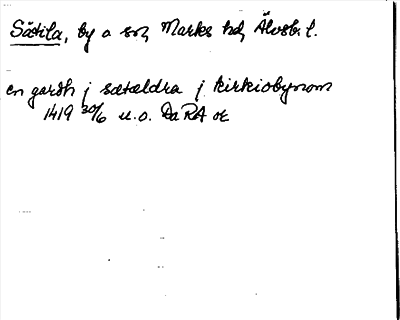 Sätila, by o sn, Marks hd, Älvsb. l.
en gardh j sætældra j kirkiobynom
1419 30/6 u.o. Da RA or